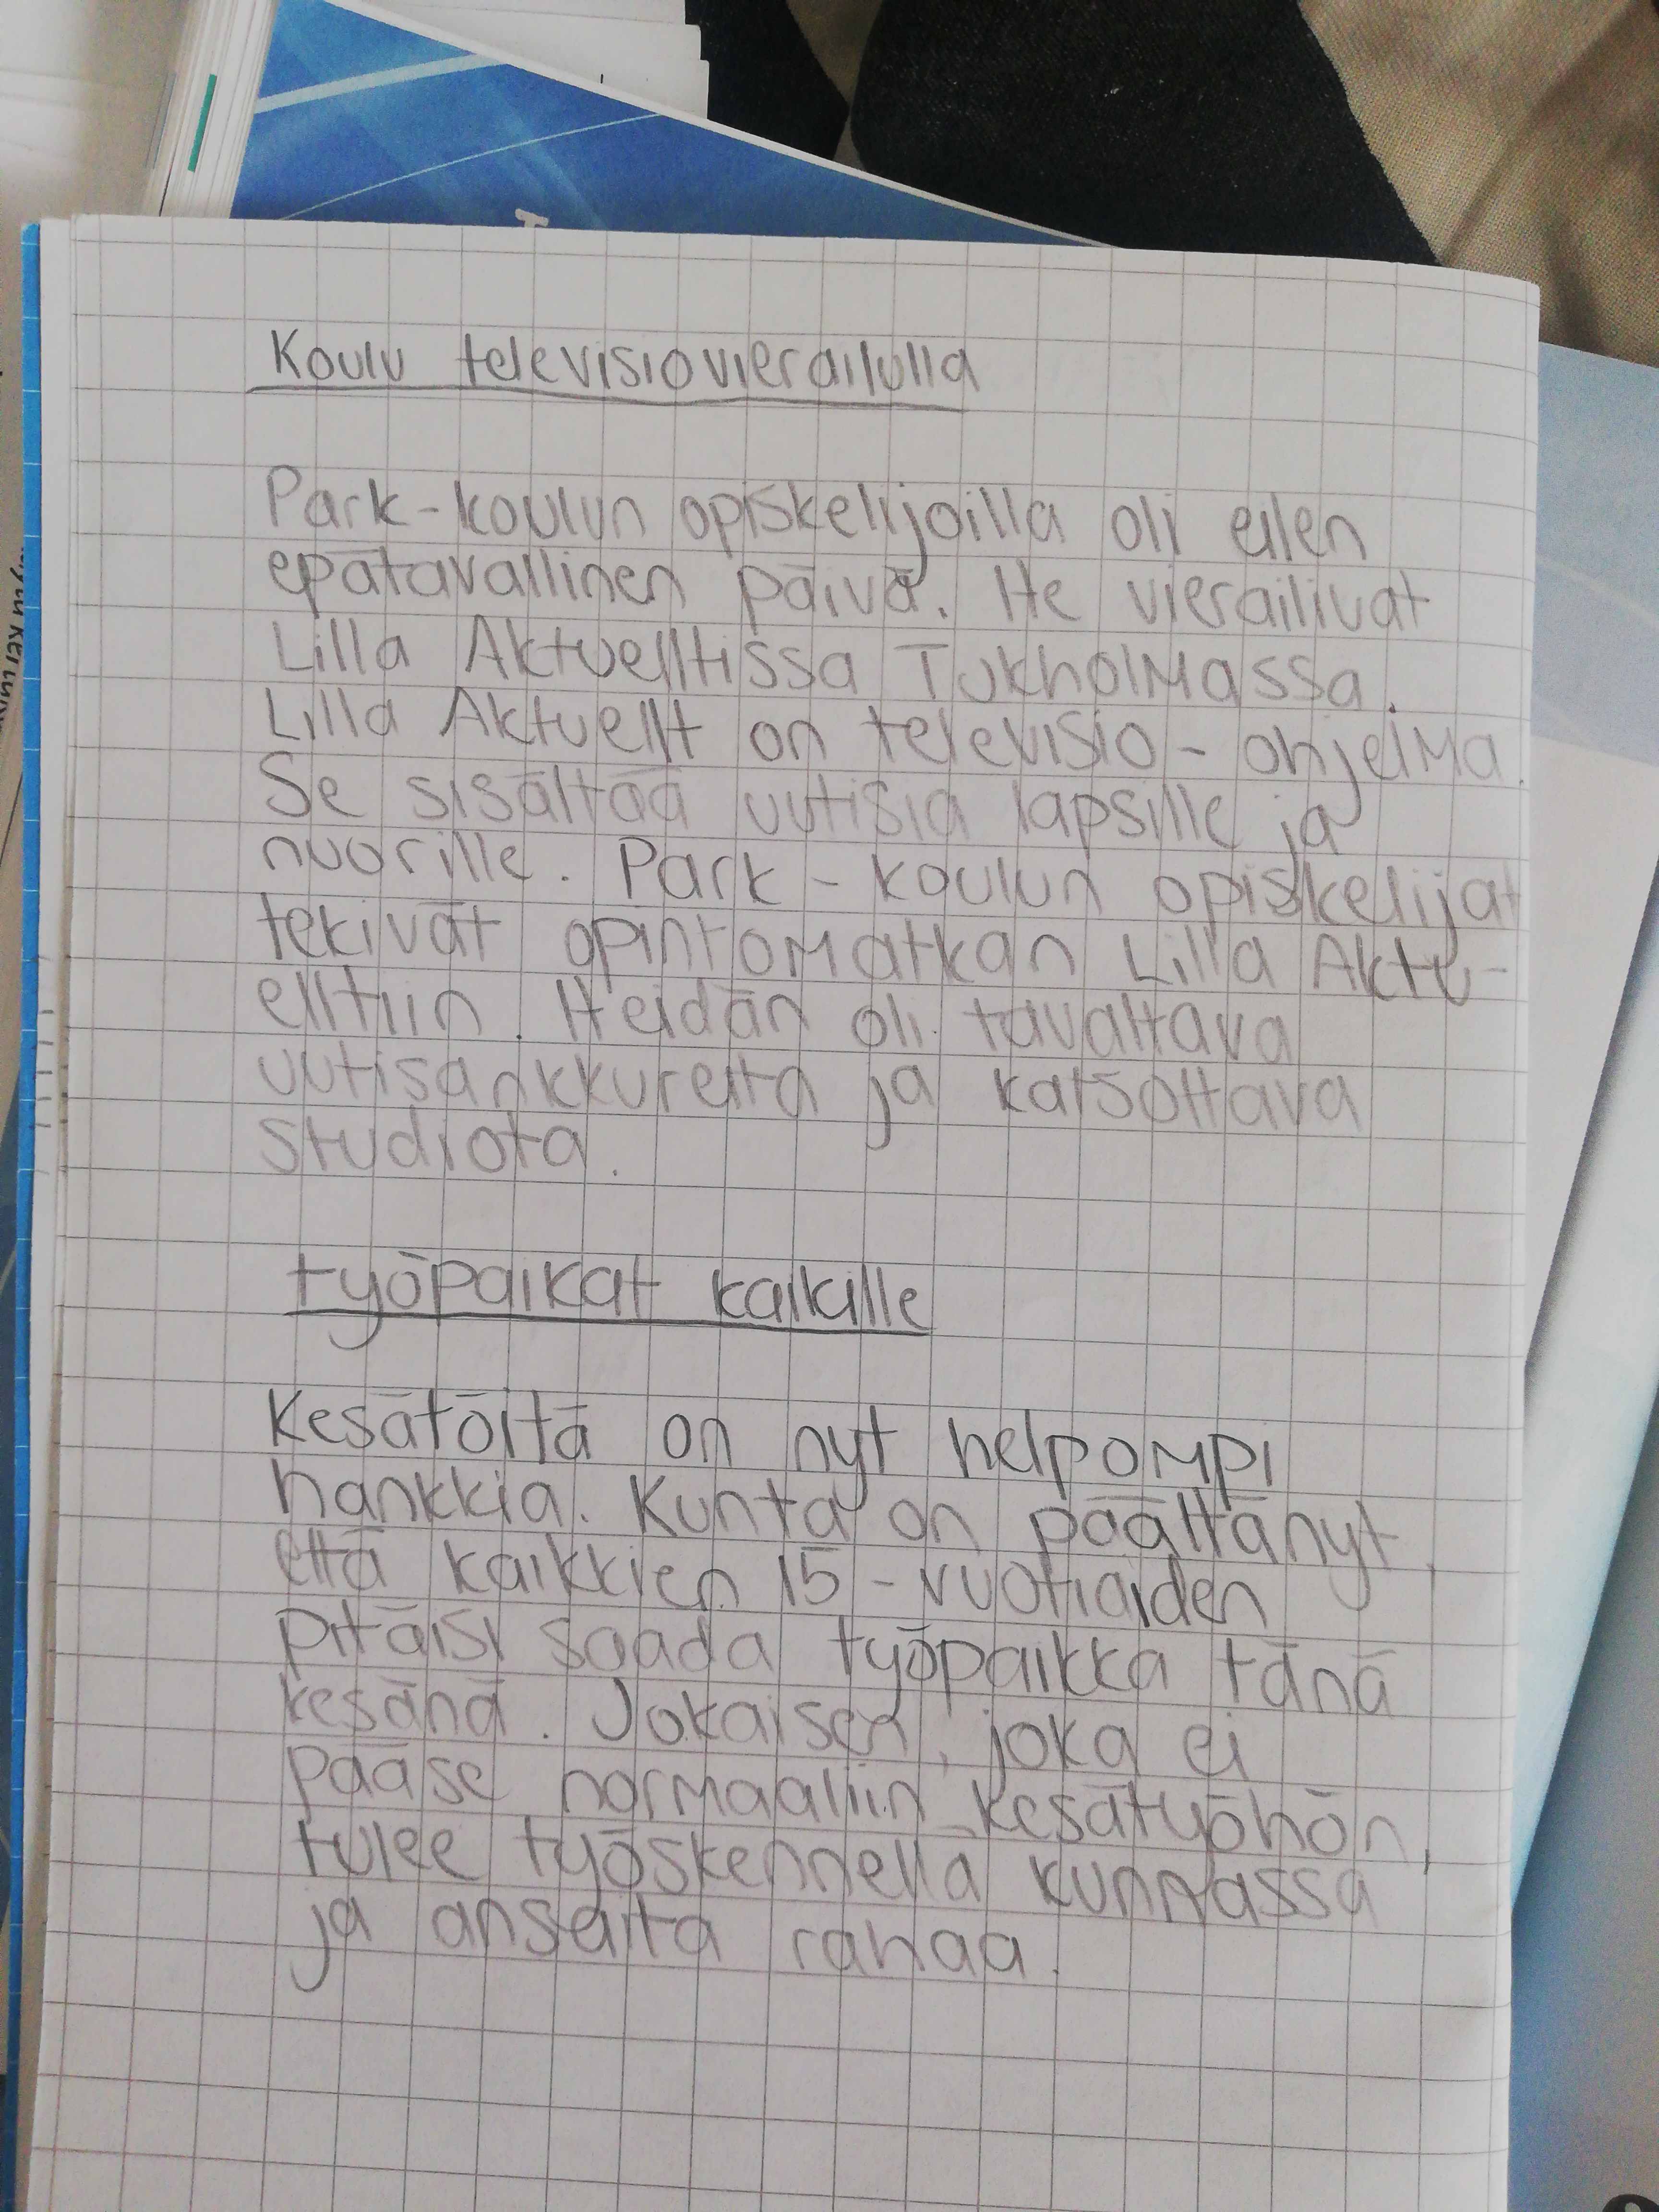 Koulu televisiovierailulla
Park-koulun opiskelijoilla oli eilen
epätavallinen päivä. He vierailivat
Lilla Aktuelltissa Tukholmassa.
Lilla Aktuellt on televisio-ohjelma.
Se sisältää uutisia lapsille ja
nuorille. Park-koulun opiskelijat
tekivät opintomatkan Lilla Aktu-
elltiin. Heidän oli tavattava
uutisankkureita ja katsottava
studiota.
työpaikat kaikille
Kesätöitä on nyt helpompi
hankkia. Kunta on päättänyt,
että kaikkien 15-vuotiaiden
pitäisi saada työpaikka tänä
kesänä. Jokaisen, joka ei
pääse normaaliin kesätyöhön,
tulee työskennellä kunnassa
ja ansaita rahaa.